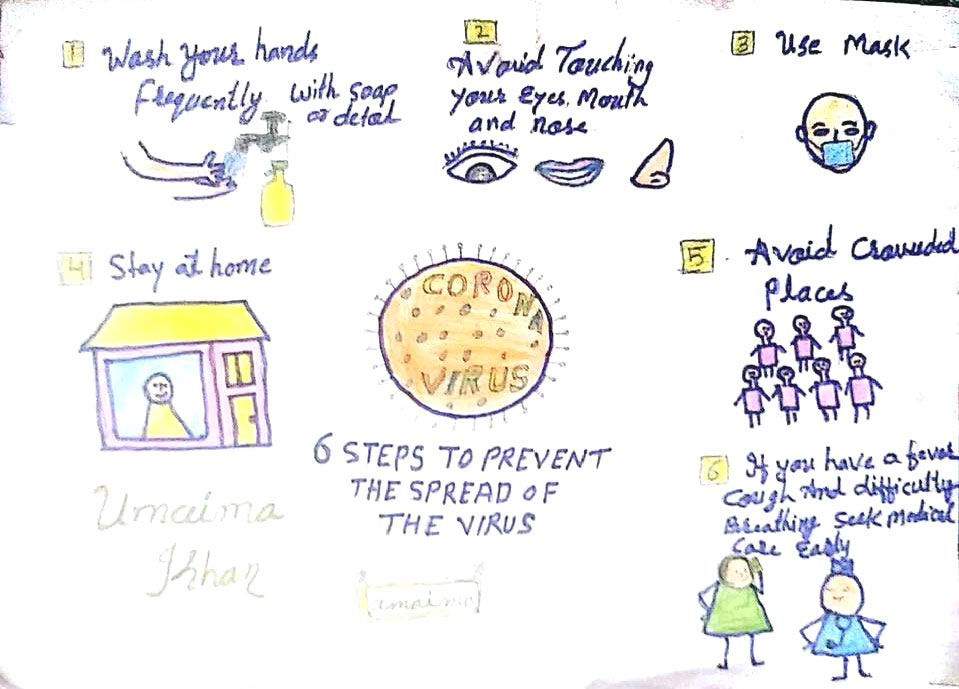 1 Wash your hands
frequently with soap
or detail
2
Avoid Touching
your Eyes, Mouth
and nose
3 Use Mask
4 Stay at home
CORONA
VIRUS
6 STEPS TO PREVENT
THE SPREAD OF
THE VIRUS
5 Avoid Crowded
places
6 If you have a fever
Cough And difficulty
Breathing Seek Medical
Care Early
Umaima
Khan
Umaima